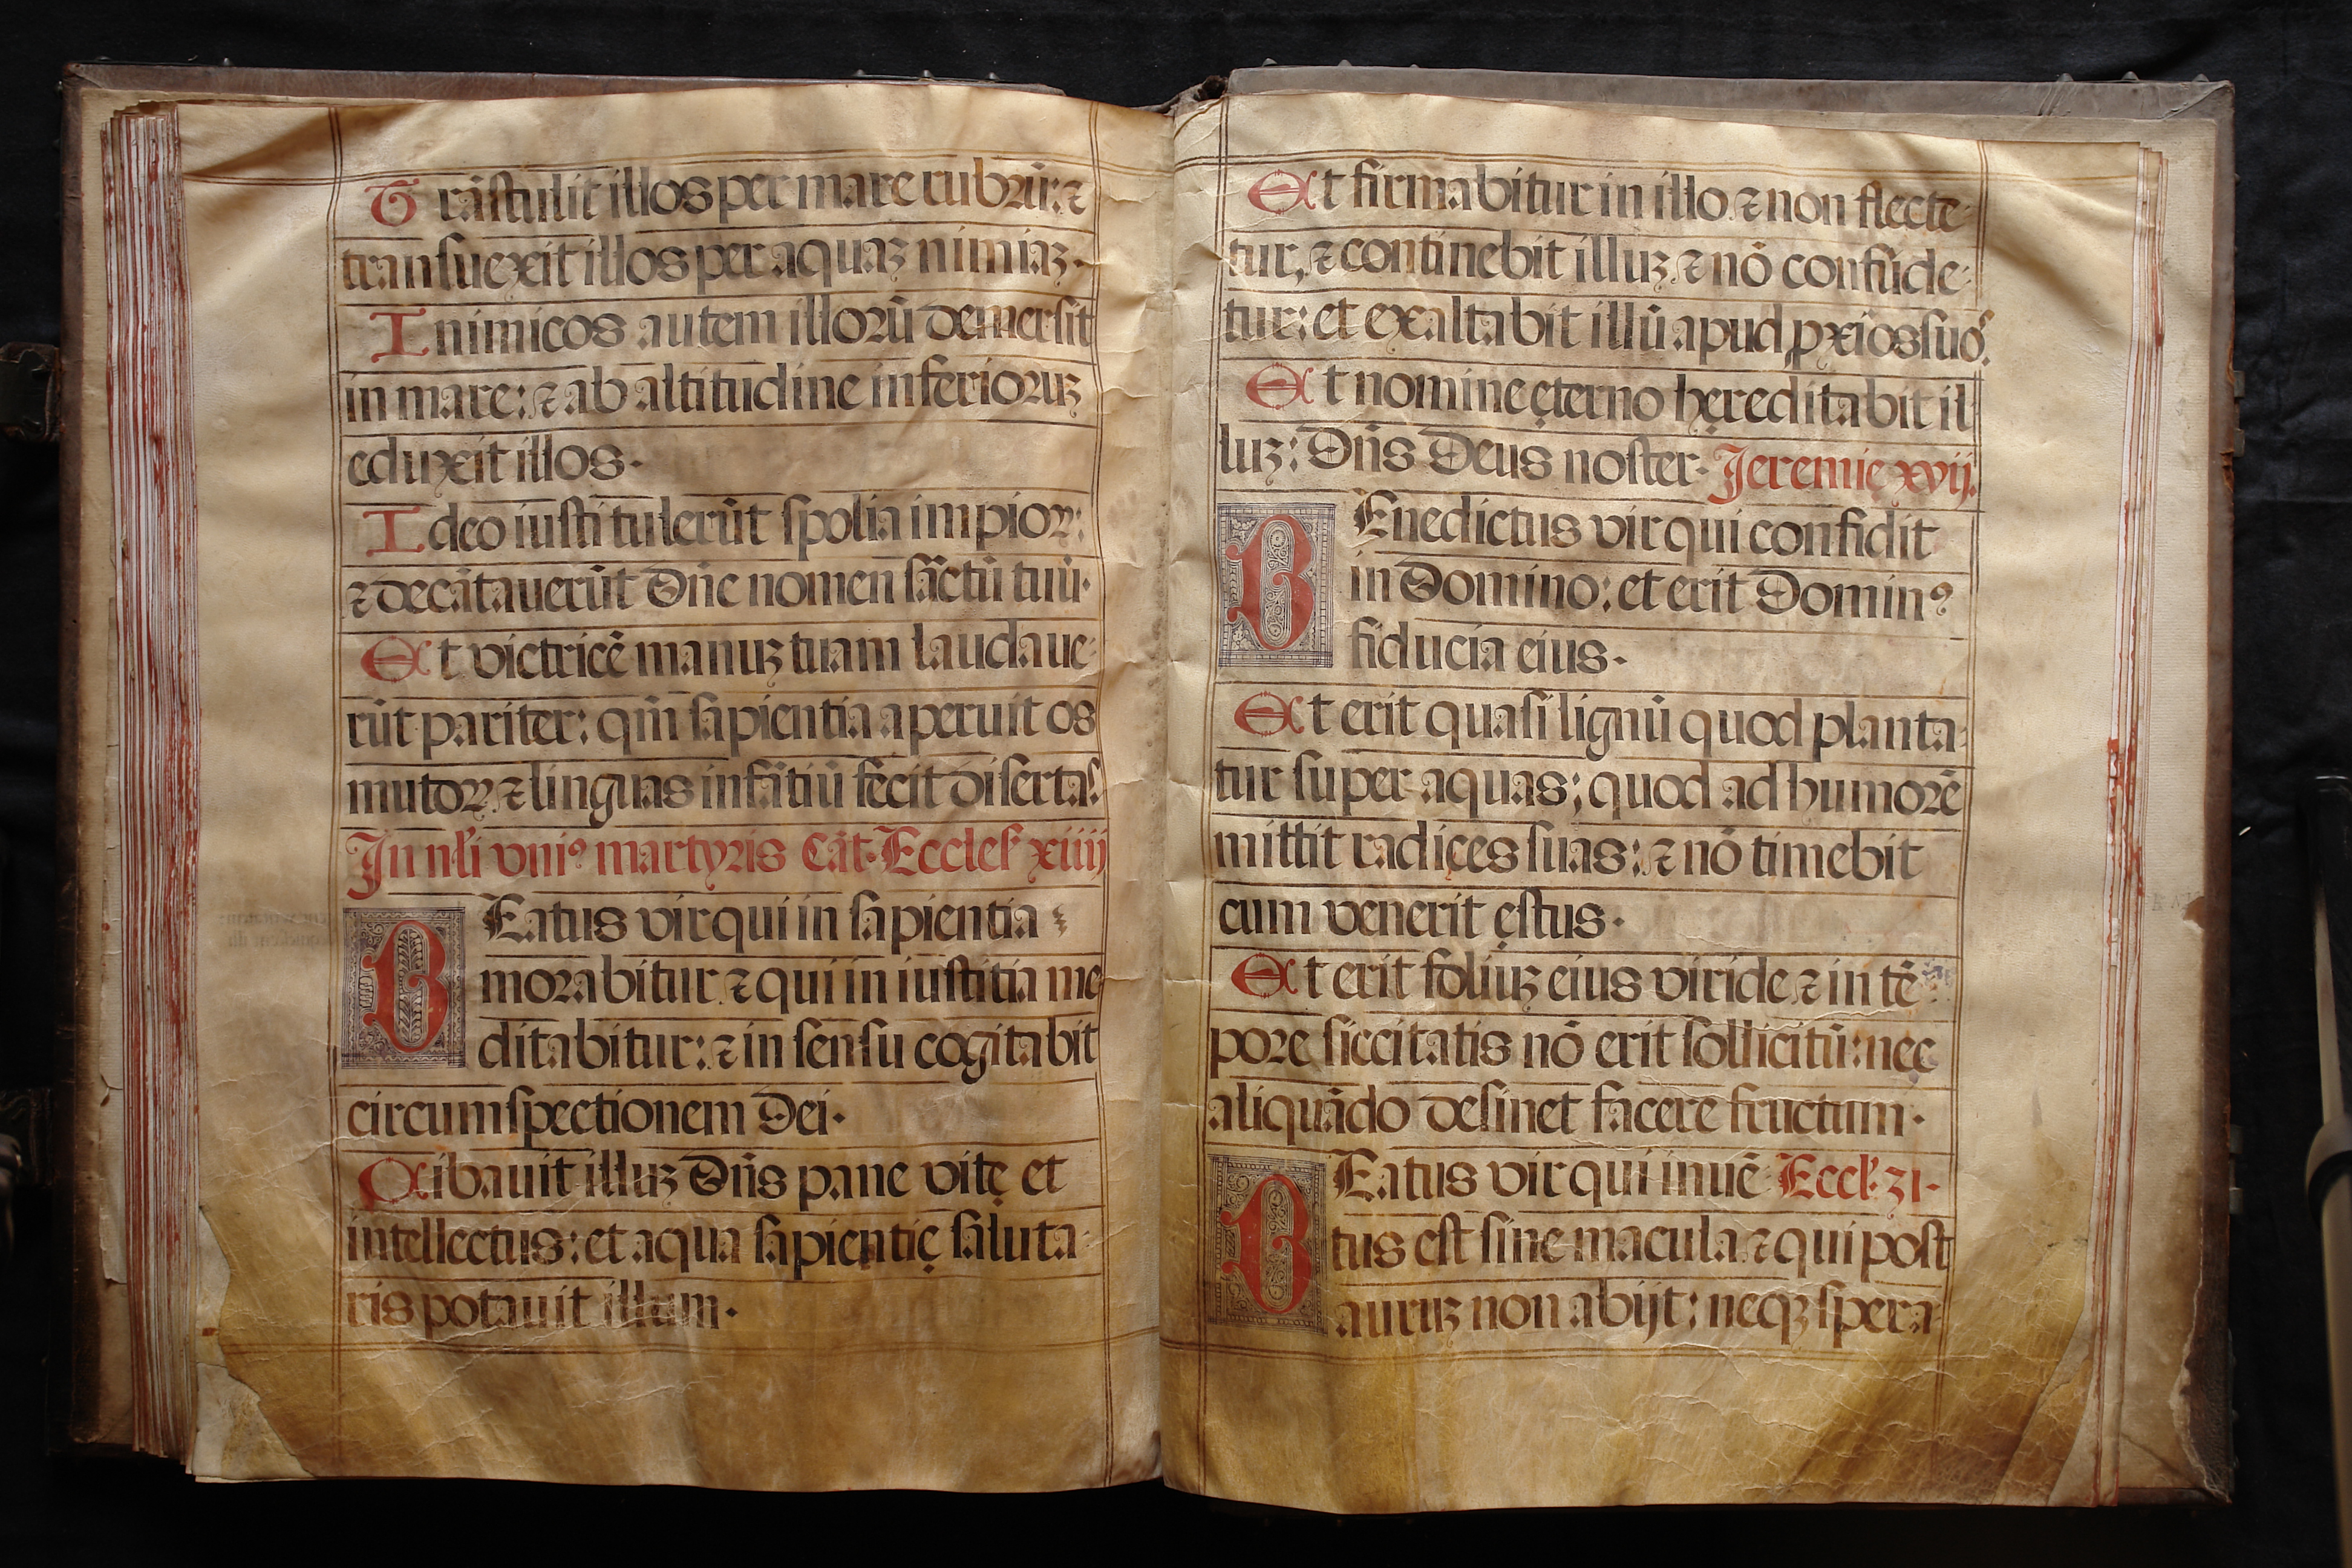 Trãstulit illos per mare rubꝛũ: ⁊
transuexit illos per aquaʒ nimiaʒ·
Inimicos autem illoꝛũ demersit
in mare: ⁊ ab altitudine inferioꝛuʒ
eduxit illos·
Ideo iusti tulerũt spolia impioꝝ:
⁊ decãtauerũt Dñe nomen sãctũ tuũ·
Et victricẽ manuʒ tuam laudaue-
rũt pariter: qm̃ sapientia aperuit os
mutoꝝ ⁊ linguas infãtiũ fecit disertas.
In nłi vniꝰ martyris Cãt· Eccles. xiiij
BEatus vir qui in sapientia
moꝛabitur ⁊ qui in iustitia me
ditabitur: ⁊ in sensu cogitabit
circumspectionem Dei·
Cibauit illuʒ Dñs pane vitę et
intellectus: et aqua sapientię saluta-
ris potauit illum·
Et firmabitur in illo ⁊ non flecte-
tur, ⁊ continebit illuʒ ⁊ nõ confũde-
tur: et exaltabit illũ apud ꝓxios suos.
Et nomine ęterno hęreditabit il-
luʒ: Dñs Deus noster· Jeremię xvij.
BEnedictus vir qui confidit
in Domino: et erit Dominꝰ
fiducia eius·
Et erit quasi lignũ quod planta-
tur super aquas; quod ad humoꝛẽ
mittit radices suas: ⁊ nõ timebit
cum venerit ęstus·
Et erit foliuʒ eius viride ⁊ in tẽ-
poꝛe siccitatis nõ erit sollicitũ: nec
aliquãdo desinet facere fructum·
BEatus vir qui inuẽ- Eccl· 31·
tus est sine macula ⁊ qui post
auruʒ non abijt: neqʒ spera-